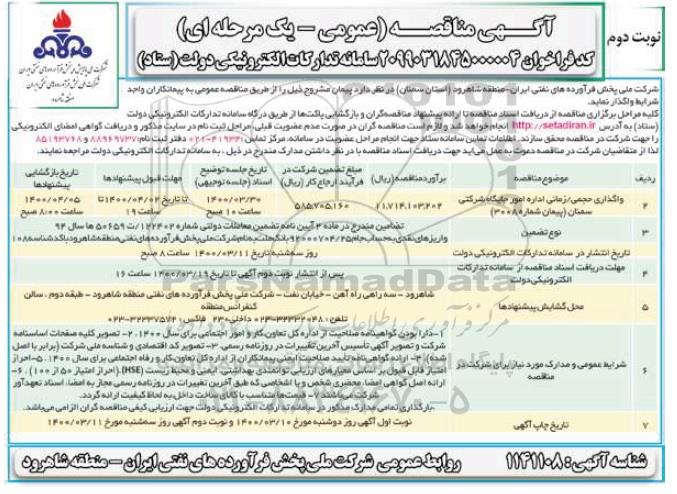 نوبت دوم
آگهی مناقصه (عمومی - یک مرحله ای)
کد فراخوان ۲۰۹۹۰۳۱۸۴۵۰۰۰۰۰۴ سامانه تدارکات الکترونیکی دولت (ستاد)
شرکت ملی پخش فرآورده های نفتی ایران -منطقه شاهرود (استان سمنان) در نظر دارد پیمان مشروح ذیل را از طریق مناقصه عمومی به پیمانکاران واجد
شرایط واگذار نماید.
کلیه مراحل برگزاری مناقصه از دریافت اسناد مناقصه تا ارائه پیشنهاد مناقصه‌گران و بازگشایی پاکت‌ها از طریق درگاه سامانه تدارکات الکترونیکی دولت
(ستاد) به آدرس http://setadiran.ir انجام خواهد شد و لازم است مناقصه گران در صورت عدم عضویت قبلی، مراحل ثبت نام در سایت مذکور و دریافت گواهی امضای الکترونیکی
را جهت شرکت در مناقصه محقق سازند. اطلاعات تماس سامانه ستاد جهت انجام مراحل عضویت در سامانه، مرکز تماس: ۴۱۹۳۴-۰۲۱ دفتر ثبت نام: ۸۸۹۶۹۷۳۷ و ۸۵۱۹۳۷۶۸
لذا از متقاضیان شرکت در مناقصه دعوت به عمل می‌آید جهت دریافت اسناد مناقصه با در نظر داشتن مدارک مندرج در ذیل ، به سامانه تدارکات الکترونیکی دولت مراجعه نمایند.
ردیف موضوع مناقصه برآورد مناقصه (ریال) مبلغ تضمین شرکت در فرآیند ارجاع کار (ریال) تاریخ جلسه توضیح اسناد (جلسه توجیهی) مهلت قبول پیشنهادها تاریخ بازگشایی پیشنهادها
۲ واگذاری حجمی/زمانی اداره امور جایگاه شرکتی سمنان (پیمان شماره ۳۰۰۸) ۱۱,۷۱۴,۱۰۳,۲۰۲ ۵۸۵,۷۰۵,۱۶۰ ۱۴۰۰/۰۳/۳۰ ساعت ۱۰ صبح تا تاریخ ۱۴۰۰/۰۴/۰۲ ساعت ۱۹ ۱۴۰۰/۰۴/۰۵ ساعت ۸:۰۰ صبح
۳ نوع تضمین تضامین مندرج در ماده ۴ آیین نامه تضمین معاملات دولتی شماره ۱۲۳۴۰۲/ت۵۰۶۵۹ ه‍ سال ۹۴
تاریخ انتشار در سامانه تدارکات الکترونیکی دولت روز سه‌شنبه تاریخ ۱۴۰۰/۰۳/۱۱ ساعت ۸ صبح
۴ مهلت دریافت اسناد مناقصه از سامانه تدارکات الکترونیکی دولت پس از انتشار نوبت دوم آگهی تا تاریخ ۱۴۰۰/۰۳/۱۹ ساعت ۱۶
۵ محل گشایش پیشنهادها شاهرود - سه راهی راه آهن - خیابان نفت - شرکت ملی پخش فرآورده های نفتی منطقه شاهرود - طبقه دوم . سالن
کنفرانس منطقه
۶ شرایط عمومی و مدارک مورد نیاز برای شرکت در مناقصه
۱-دارا بودن گواهینامه صلاحیت از اداره کل تعاون کار و امور اجتماعی برای سال ۱۴۰۰ .۲- تصویر کلیه صفحات اساسنامه
شرکت و تصویر آگهی تأسیس آخرین تغییرات در روزنامه رسمی. ۳- تصویر کد اقتصادی و شناسه ملی شرکت (برابر با اصل
شده). ۴- ارائه گواهی‌نامه تأیید صلاحیت ایمنی پیمانکاران از اداره کل تعاون کار و رفاه اجتماعی برای سال ۱۴۰۰ .۵-احراز
امتیاز قابل قبول بر اساس معیارهای ارزیابی توانمندی بهداشتی، ایمنی و محیط زیست (HSE).(احراز امتیاز ۵۰ از ۱۰۰) .۶-
ارائه اصل گواهی امضا، محضری شخص و یا اشخاصی که طبق آخرین تغییرات در روزنامه رسمی مجاز به امضاء اسناد تعهدآور
شرکت می‌باشند.
-بارگذاری تمامی مدارک مذکور در سامانه تدارکات الکترونیکی دولت جهت ارزیابی کیفی مناقصه گران الزامی می‌باشد.
۷ تاریخ چاپ آگهی نوبت اول آگهی روز دوشنبه مورخ ۱۴۰۰/۰۳/۱۰ و نوبت دوم آگهی روز سه‌شنبه مورخ ۱۴۰۰/۰۳/۱۱
شناسه آگهی: ۱۱۴۱۱۰۸ روابط عمومی شرکت ملی پخش فرآورده های نفتی ایران - منطقه شاهرود